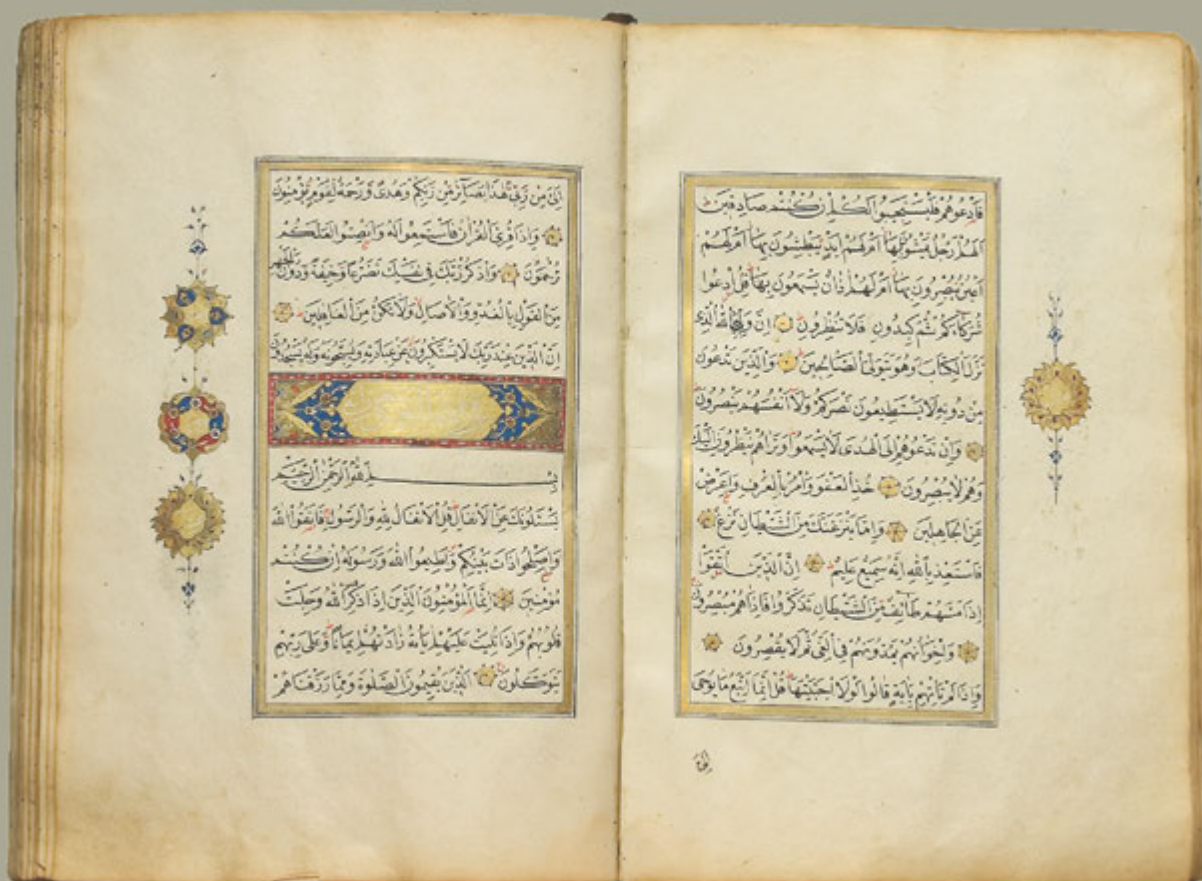 فَادْعُوهُمْ فَلْيَسْتَجِيبُوا لَكُمْ اِنْ كُنْتُمْ صَادِقِينَ
اَلَهُمْ اَرْجُلٌ يَمْشُونَ بِهَا اَمْ لَهُمْ اَيْدٍ يَبْطِشُونَ بِهَا اَمْ لَهُمْ
اَعْيُنٌ يُبْصِرُونَ بِهَا اَمْ لَهُمْ اٰذَانٌ يَسْمَعُونَ بِهَا قُلِ ادْعُوا
شُرَكَاءَكُمْ ثُمَّ كِيدُونِ فَلَا تُنْظِرُونِ اِنَّ وَلِيِّيَ اللهُ الَّذِي
نَزَّلَ الْكِتَابَ وَهُوَ يَتَوَلَّى الصَّالِحِينَ وَالَّذِينَ تَدْعُونَ
مِنْ دُونِهِ لَا يَسْتَطِيعُونَ نَصْرَكُمْ وَلَا اَنْفُسَهُمْ يَنْصُرُونَ
وَاِنْ تَدْعُوهُمْ اِلَى الْهُدَى لَا يَسْمَعُوا وَتَرَاهُمْ يَنْظُرُونَ اِلَيْكَ
وَهُمْ لَا يُبْصِرُونَ خُذِ الْعَفْوَ وَأْمُرْ بِالْعُرْفِ وَاَعْرِضْ
عَنِ الْجَاهِلِينَ وَاِمَّا يَنْزَغَنَّكَ مِنَ الشَّيْطَانِ نَزْغٌ
فَاسْتَعِذْ بِاللهِ اِنَّهُ سَمِيعٌ عَلِيمٌ اِنَّ الَّذِينَ اتَّقَوْا
اِذَا مَسَّهُمْ طَائِفٌ مِنَ الشَّيْطَانِ تَذَكَّرُوا فَاِذَا هُمْ مُبْصِرُونَ
وَاِخْوَانُهُمْ يَمُدُّونَهُمْ فِي الْغَيِّ ثُمَّ لَا يُقْصِرُونَ
وَاِذَا لَمْ تَأْتِهِمْ بِاٰيَةٍ قَالُوا لَوْلَا اجْتَبَيْتَهَا قُلْ اِنَّمَا اَتَّبِعُ مَا يُوحَى
اِلَيَّ
اِلَيَّ مِنْ رَبِّي هٰذَا بَصَائِرُ مِنْ رَبِّكُمْ وَهُدًى وَرَحْمَةٌ لِقَوْمٍ يُؤْمِنُونَ
وَاِذَا قُرِئَ الْقُرْاٰنُ فَاسْتَمِعُوا لَهُ وَاَنْصِتُوا لَعَلَّكُمْ
تُرْحَمُونَ وَاذْكُرْ رَبَّكَ فِي نَفْسِكَ تَضَرُّعًا وَخِيفَةً وَدُونَ الْجَهْرِ
مِنَ الْقَوْلِ بِالْغُدُوِّ وَالْاٰصَالِ وَلَا تَكُنْ مِنَ الْغَافِلِينَ
اِنَّ الَّذِينَ عِنْدَ رَبِّكَ لَا يَسْتَكْبِرُونَ عَنْ عِبَادَتِهِ وَيُسَبِّحُونَهُ وَلَهُ يَسْجُدُونَ
بِسْمِ اللهِ الرَّحْمٰنِ الرَّحِيمِ
يَسْئَلُونَكَ عَنِ الْاَنْفَالِ قُلِ الْاَنْفَالُ لِلّٰهِ وَالرَّسُولِ فَاتَّقُوا اللهَ
وَاَصْلِحُوا ذَاتَ بَيْنِكُمْ وَاَطِيعُوا اللهَ وَرَسُولَهُ اِنْ كُنْتُمْ
مُؤْمِنِينَ اِنَّمَا الْمُؤْمِنُونَ الَّذِينَ اِذَا ذُكِرَ اللهُ وَجِلَتْ
قُلُوبُهُمْ وَاِذَا تُلِيَتْ عَلَيْهِمْ اٰيَاتُهُ زَادَتْهُمْ اِيمَانًا وَعَلَى رَبِّهِمْ
يَتَوَكَّلُونَ اَلَّذِينَ يُقِيمُونَ الصَّلٰوةَ وَمِمَّا رَزَقْنَاهُمْ